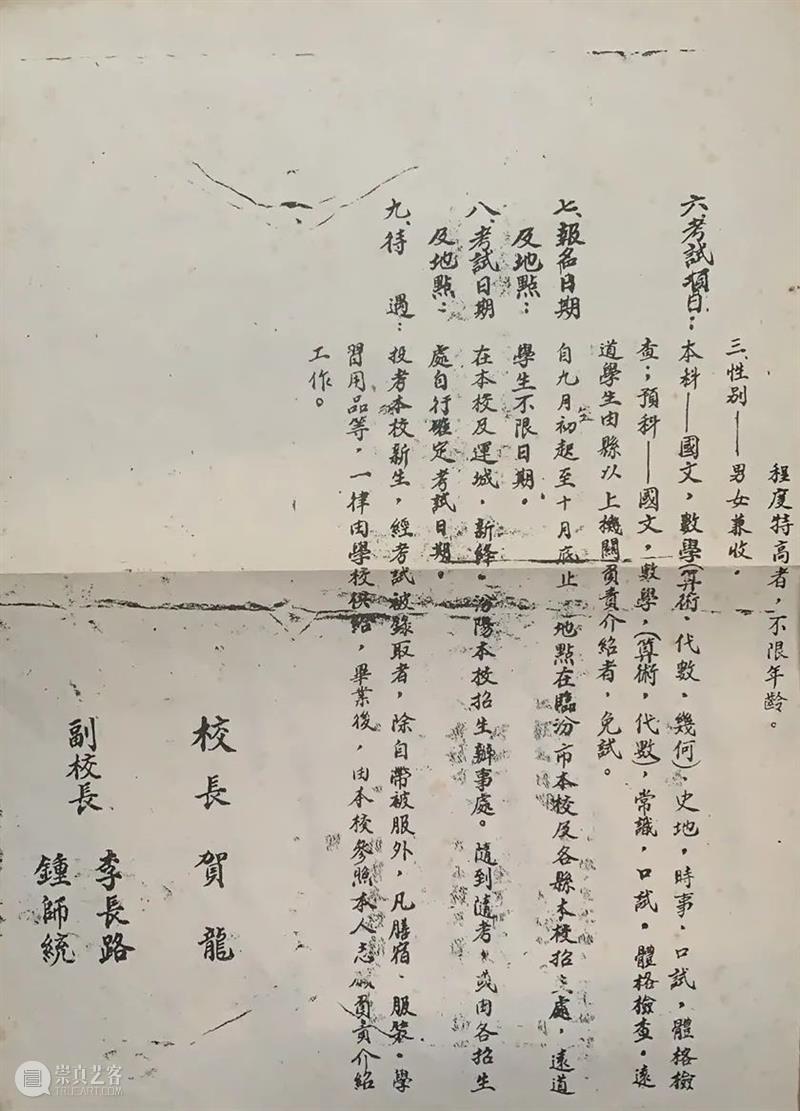 程度特高者，不限年齡。
三、性别——男女兼收。
六、考試項目：本科——國文，數學（算術、代數、幾何）、史地，時事、口試，體格檢
查；預科——國文，數學，（算術，代數），常識，口試。體格檢查。遠
道學生由縣以上機關負責介紹者，免試。
七、報名日期 自九月初起至十月底止 地點在臨汾市本校及各縣本校招 處，遠道
及地點： 學生不限日期。
八、考試日期 在本校及運城，新絳。汾陽本校招生辦事處。隨到隨考，或由各招生
及地點： 處自行確定考試日期。
九、待 遇：投考本校新生，經考試被錄取者，除自帶被服外，凡膳宿、服裝。學
習用品等，一律由學校供給，畢業後，由本校參照本人志願負責介紹
工作。
校長 賀龍
副校長 李長路
鍾師統
崇真艺客
TRUEART.COM